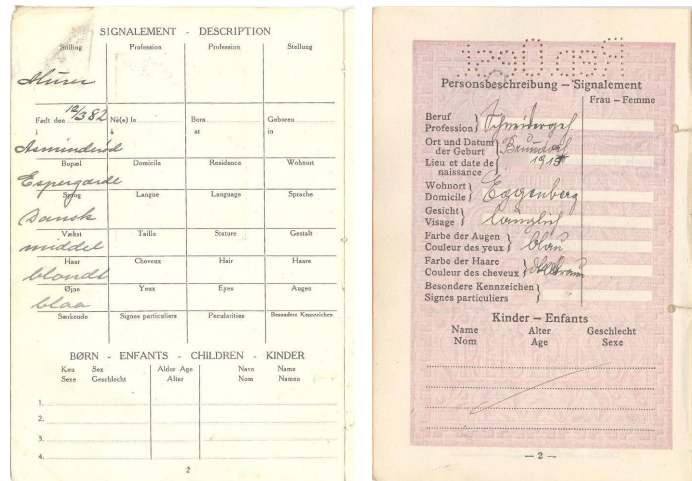 SIGNALEMENT - DESCRIPTION
Stilling Profession Profession Stellung
Murer
Født den 12/3 82 Né(e) le Born Geboren
i à at in
Asminderød
Bopæl Domicile Residence Wohnort
Espergærde
Sprog Langue Language Sprache
Dansk
Vækst Taille Stature Gestalt
middel
Haar Cheveux Hair Haare
blondt
Øjne Yeux Eyes Augen
blaa
Særkende Signes particuliers Pecularities Besondere Kennzeichen
BØRN - ENFANTS - CHILDREN - KINDER
Køn Sex Alder Age Navn Name
Sexe Geschlecht Alter Nom Namen
1.
2.
3.
4.
2
Personsbeschreibung — Signalement
Frau - Femme
Beruf
Profession
Ort und Datum
der Geburt
Lieu et date de
naissance
Wohnort
Domicile Eggenberg
Gesicht
Visage länglich
Farbe der Augen
Couleur des yeux blau
Farbe der Haare
Couleur des cheveux
Besondere Kennzeichen
Signes particuliers
Kinder - Enfants
Name Alter Geschlecht
Nom Age Sexe
— 2 —